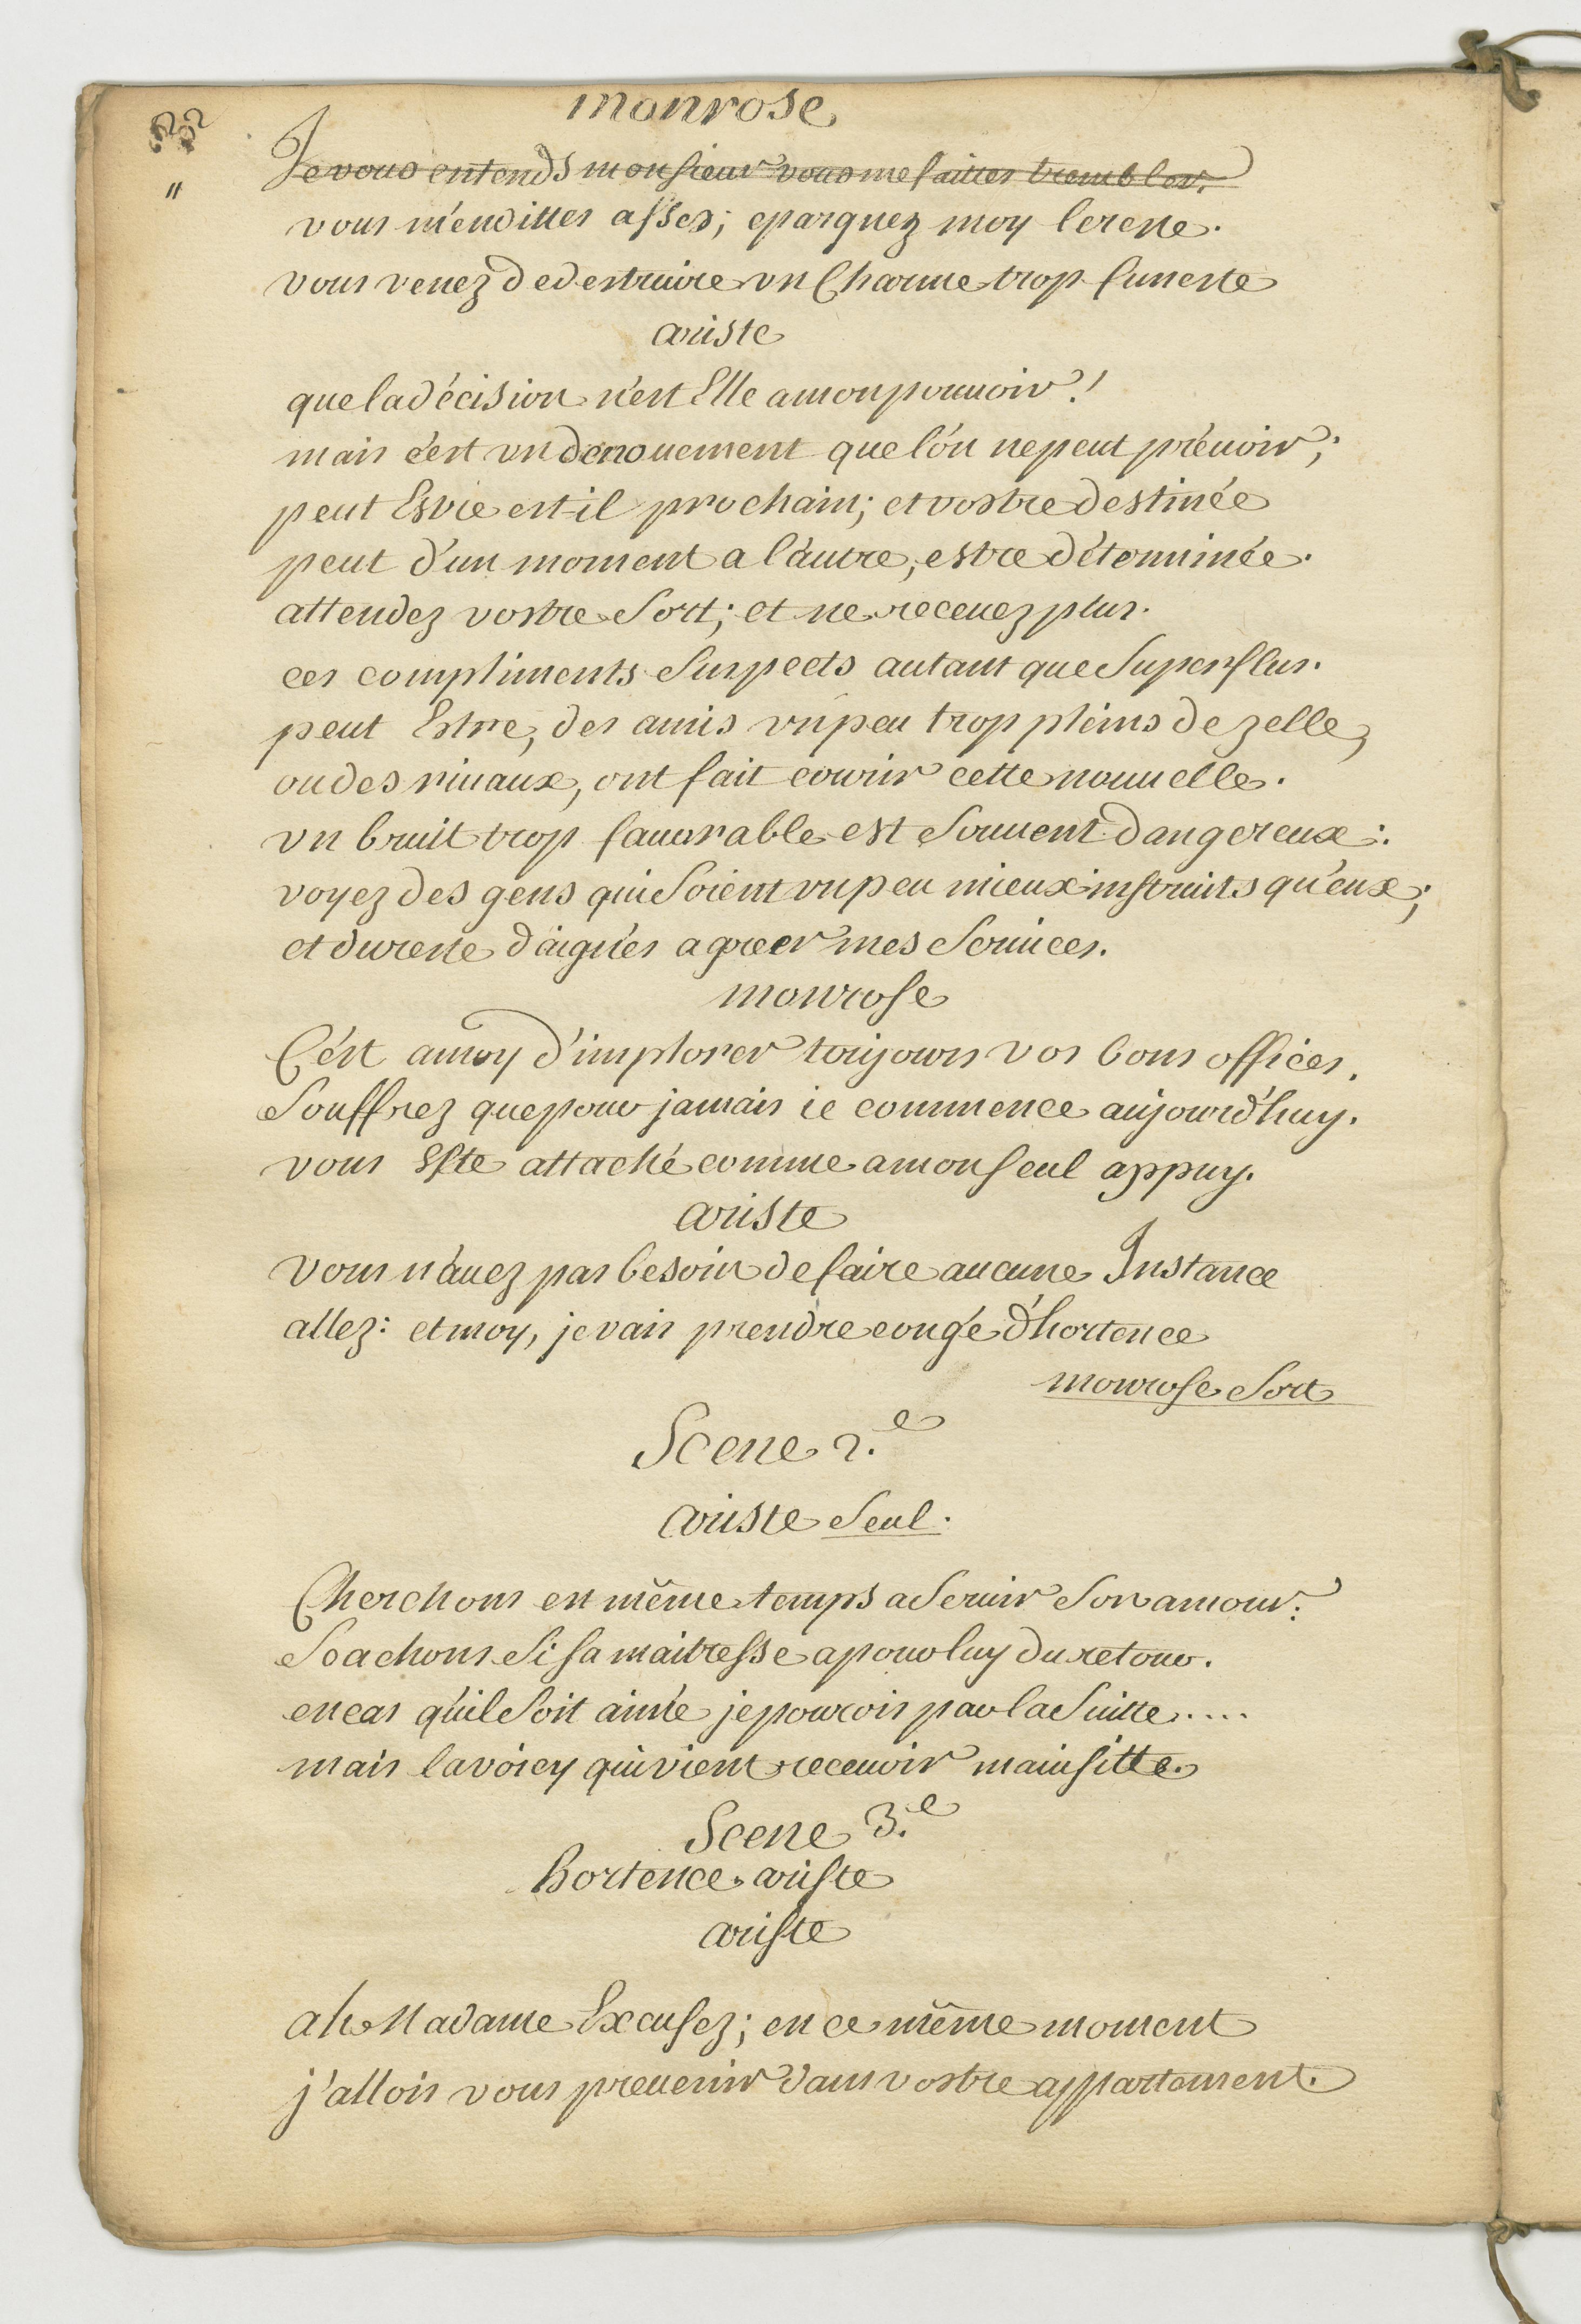 monrose
"
Je vous entends monsieur vous me faittes trembler.
vous m'en dittes assez; epargnez moy le reste.
vous venez de destruire un Charme trop funeste
ariste
que la décision n'est Elle a mon pouuoir!
mais c'est un denouement que l'on ne peut préuoir;
peut Estre est-il prochain; et vostre destinée
peut d'un moment a l'autre, estre déterminée.
attendez vostre Sort; et ne receuez plus.
ces compliments Suspects autant que Superflus.
peut Estre, des amis un peu trop pleins de zelle,
ou des riuaux, ont fait courir cette nouuelle.
un bruit trop fauorable est Souuent dangereux:
voyez des gens qui Soient un peu mieux instruits qu'eux;
et du reste daignés agreer mes Seruices.
monrose
C'est a moy d'implorer toujours vos bons offices.
Souffrez que pour jamais ie commence aujourd'huy.
vous Estre attaché comme a mon seul appuy.
ariste
vous n'auez pas besoin de faire aucune Instance
allez: et moy, je vais prendre congé d'hortence
monrose Sort
Scene 2.e
ariste Seul.
Cherchons en même temps a Seruir Son amour:
Scachons Si sa maitresse a pour luy du retour.
en cas qu'il Soit aimé je pourrois par la Suitte....
mais la voicy qui vient receuoir ma visitte.
Scene 3.e
hortence. ariste
ariste
ah Madame Excusez; en ce même moment
j'allois vous preuenir dans vostre appartement.